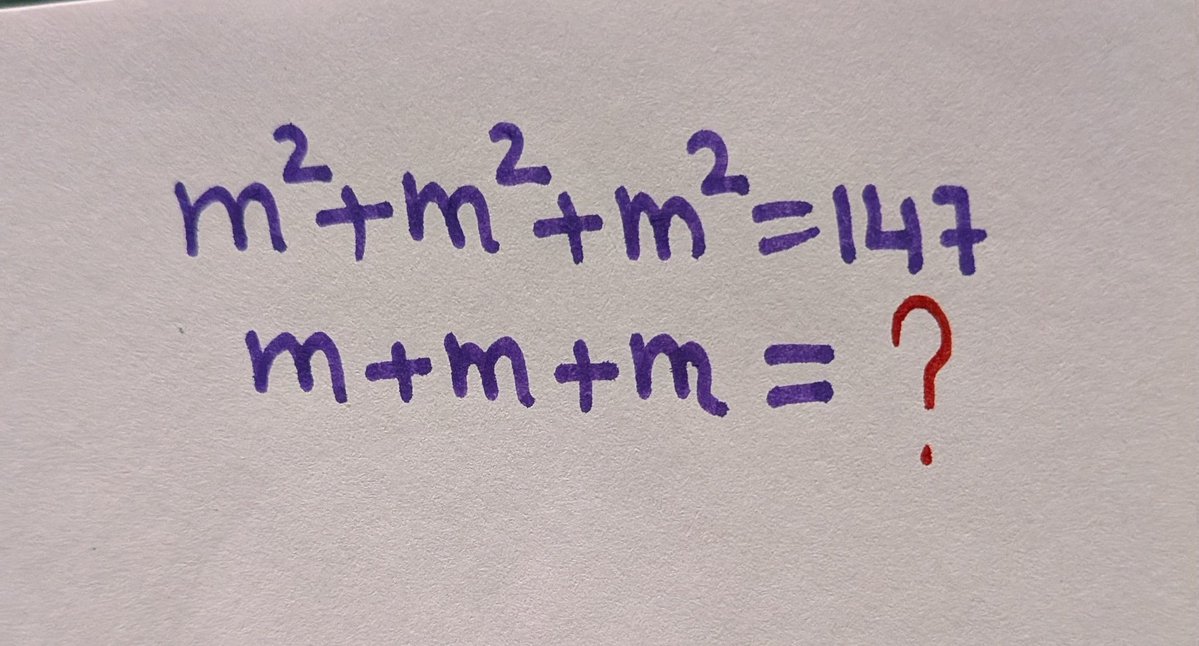 m²+m²+m²=147
m+m+m = ?